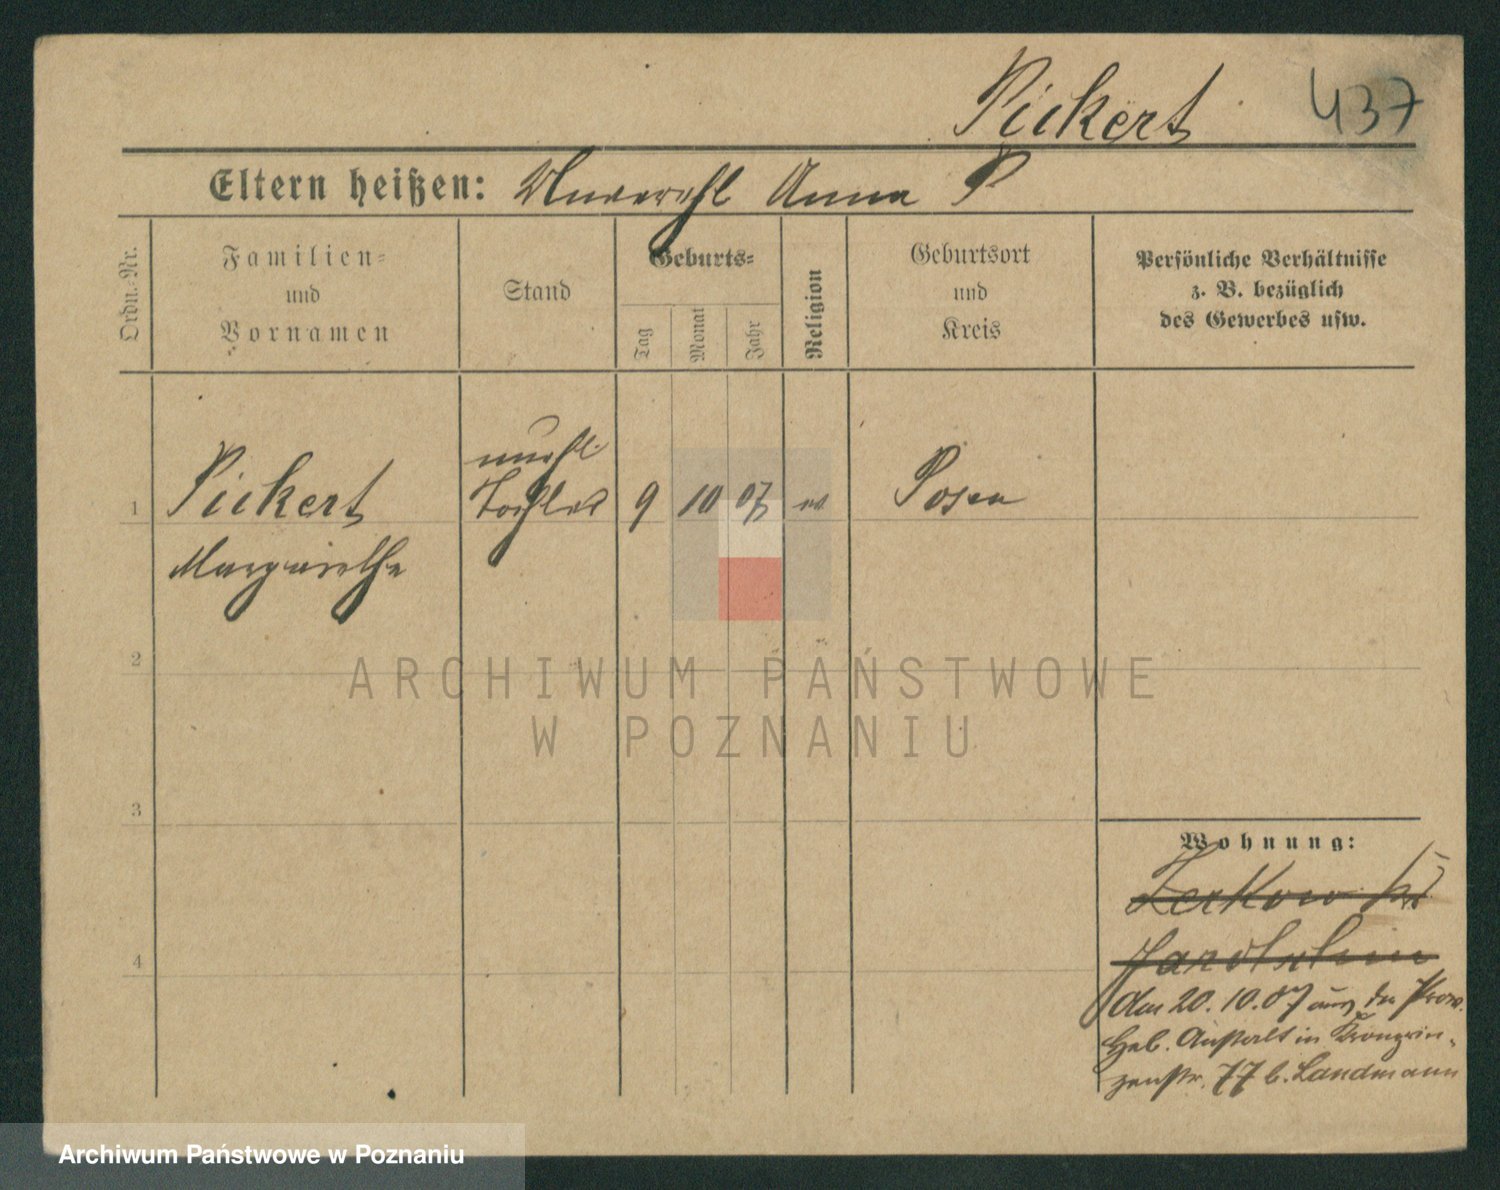 Pickert
437
Eltern heißen: Unverehl Anna P
Ordn.-Nr.
Familien-
und
Vornamen
Stand
Geburts-
Tag
Monat
Jahr
Religion
Geburtsort
und
Kreis
Persönliche Verhältnisse
z. B. bezüglich
des Gewerbes usw.
1
Pickert
Margarethe
unehl
Tochter
9
10
07
Posen
2
3
4
ARCHIWUM PAŃSTWOWE
W POZNANIU
Wohnung:
Zerkow Kr
Jarotschin
den 20.10.07 aus der Prov.
Heb. Anstalt in Kronprin-
zenstr. 77 b. Landmann
Archiwum Państwowe w Poznaniu